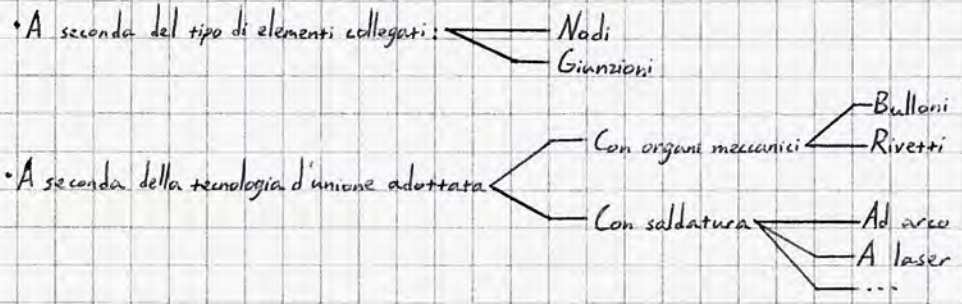 • A seconda del tipo di elementi collegati:
Nodi
Giunzioni
• A seconda della tecnologia d'unione adottata
Con organi meccanici
Bulloni
Rivetti
Con saldatura
Ad arco
A laser
....